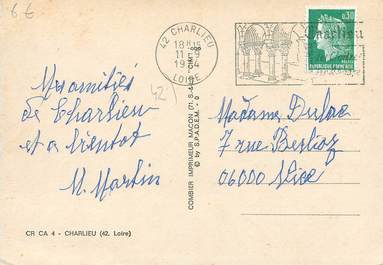 6€
42 CHARLIEU
18H15
11-9
1974
LOIRE
Charlieu
0,30
REPUBLIQUE FRANÇAISE
POSTES
42
Mes amitiés
de Charlieu
et a bientot
M. Martin
Madame Dulac
7 rue Berlioz
06000 Nice
COMBIER IMPRIMEUR MACON (71. S.-&-L.) "CIM"
© by S.P.A.D.E.M. - 0
CR CA 4 - CHARLIEU (42. Loire)